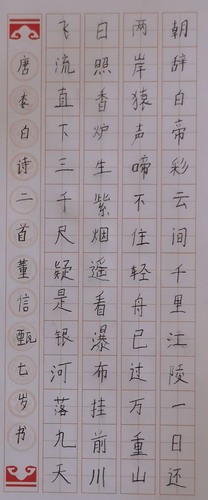 朝辞白帝彩云间千里江陵一日还
两岸猿声啼不住轻舟已过万重山
日照香炉生紫烟遥看瀑布挂前川
飞流直下三千尺疑是银河落九天
唐李白诗二首董信甄七岁书